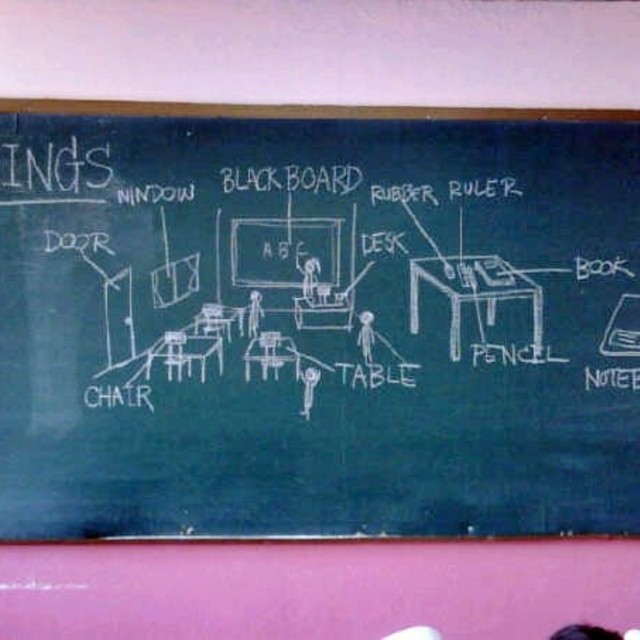 INGS
WINDOW
BLACKBOARD
RUBBER
RULER
DOOR
ABC
DESK
BOOK
PENCIL
TABLE
NOTEB
CHAIR